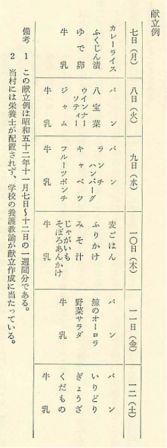 献立例
七日(月)
カレーライス
ふくじん漬
ゆで卵
牛乳
八日(火)
パン
八宝菜
ウインナーソーティー
ジャム
牛乳
九日(水)
パン
ランチハンバーグ
キャベツ
フルーツポンチ
牛乳
一〇日(木)
麦ごはん
ふりかけ
みそ汁
じゃがいも
そぼろあんかけ
牛乳
一一日(金)
パン
鯨のオーロラ
野菜サラダ
牛乳
一二(土)
パン
いりどり
ぎょうざ
くだもの
牛乳
備考 1 この献立例は昭和五十二年十一月七日〜十二日の一週間分である。
2 当村には栄養士が配置されず、学校の養護教諭が献立作成に当たっている。